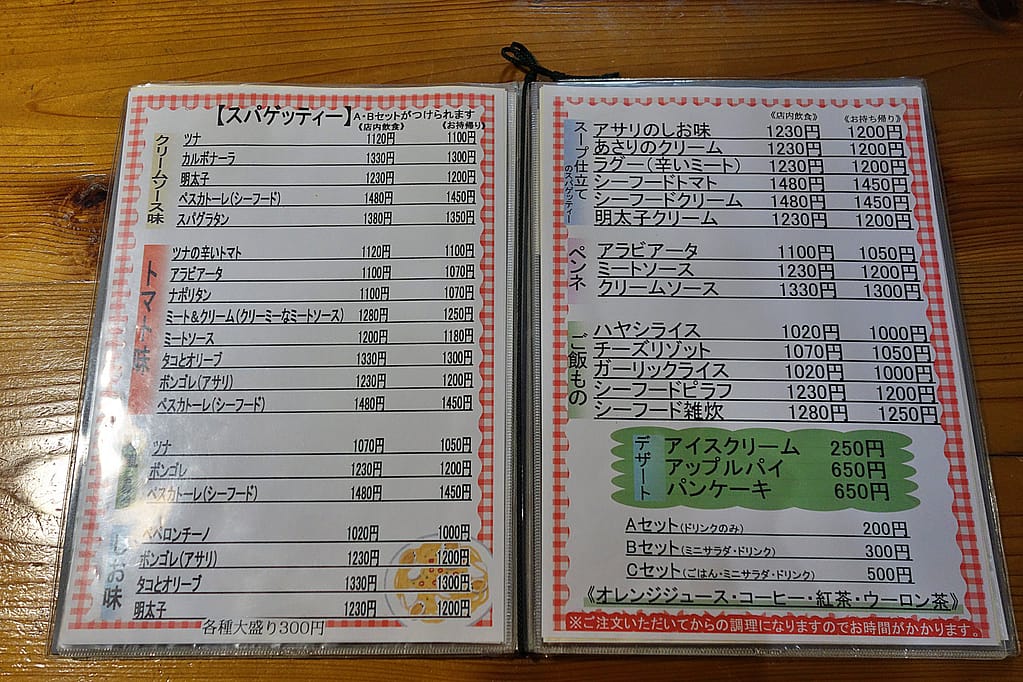 【スパゲッティー】A・Bセットがつけられます
《店内飲食》 《お持帰り》
クリームソース味
ツナ 1120円 1100円
カルボナーラ 1330円 1300円
明太子 1230円 1200円
ペスカトーレ(シーフード) 1480円 1450円
スパグラタン 1380円 1350円
トマト味
ツナの辛いトマト 1120円 1100円
アラビアータ 1100円 1070円
ナポリタン 1100円 1070円
ミート&クリーム(クリーミーなミートソース) 1280円 1250円
ミートソース 1200円 1180円
タコとオリーブ 1330円 1300円
ボンゴレ(アサリ) 1230円 1200円
ペスカトーレ(シーフード) 1480円 1450円
ツナ 1070円 1050円
ボンゴレ 1230円 1200円
ペスカトーレ(シーフード) 1480円 1450円
しお味
ペペロンチーノ 1020円 1000円
ボンゴレ(アサリ) 1230円 1200円
タコとオリーブ 1330円 1300円
明太子 1230円 1200円
各種大盛り300円
《店内飲食》 《お持ち帰り》
スープ仕立て
のスパゲッティー
アサリのしお味 1230円 1200円
あさりのクリーム 1230円 1200円
ラグー(辛いミート) 1230円 1200円
シーフードトマト 1480円 1450円
シーフードクリーム 1480円 1450円
明太子クリーム 1230円 1200円
ペンネ
アラビアータ 1100円 1050円
ミートソース 1230円 1200円
クリームソース 1330円 1300円
ご飯もの
ハヤシライス 1020円 1000円
チーズリゾット 1070円 1050円
ガーリックライス 1020円 1000円
シーフードピラフ 1230円 1200円
シーフード雑炊 1280円 1250円
デザート
アイスクリーム 250円
アップルパイ 650円
パンケーキ 650円
Aセット(ドリンクのみ) 200円
Bセット(ミニサラダ・ドリンク) 300円
Cセット(ごはん・ミニサラダ・ドリンク) 500円
《オレンジジュース・コーヒー・紅茶・ウーロン茶》
※ご注文いただいてからの調理になりますのでお時間がかかります。